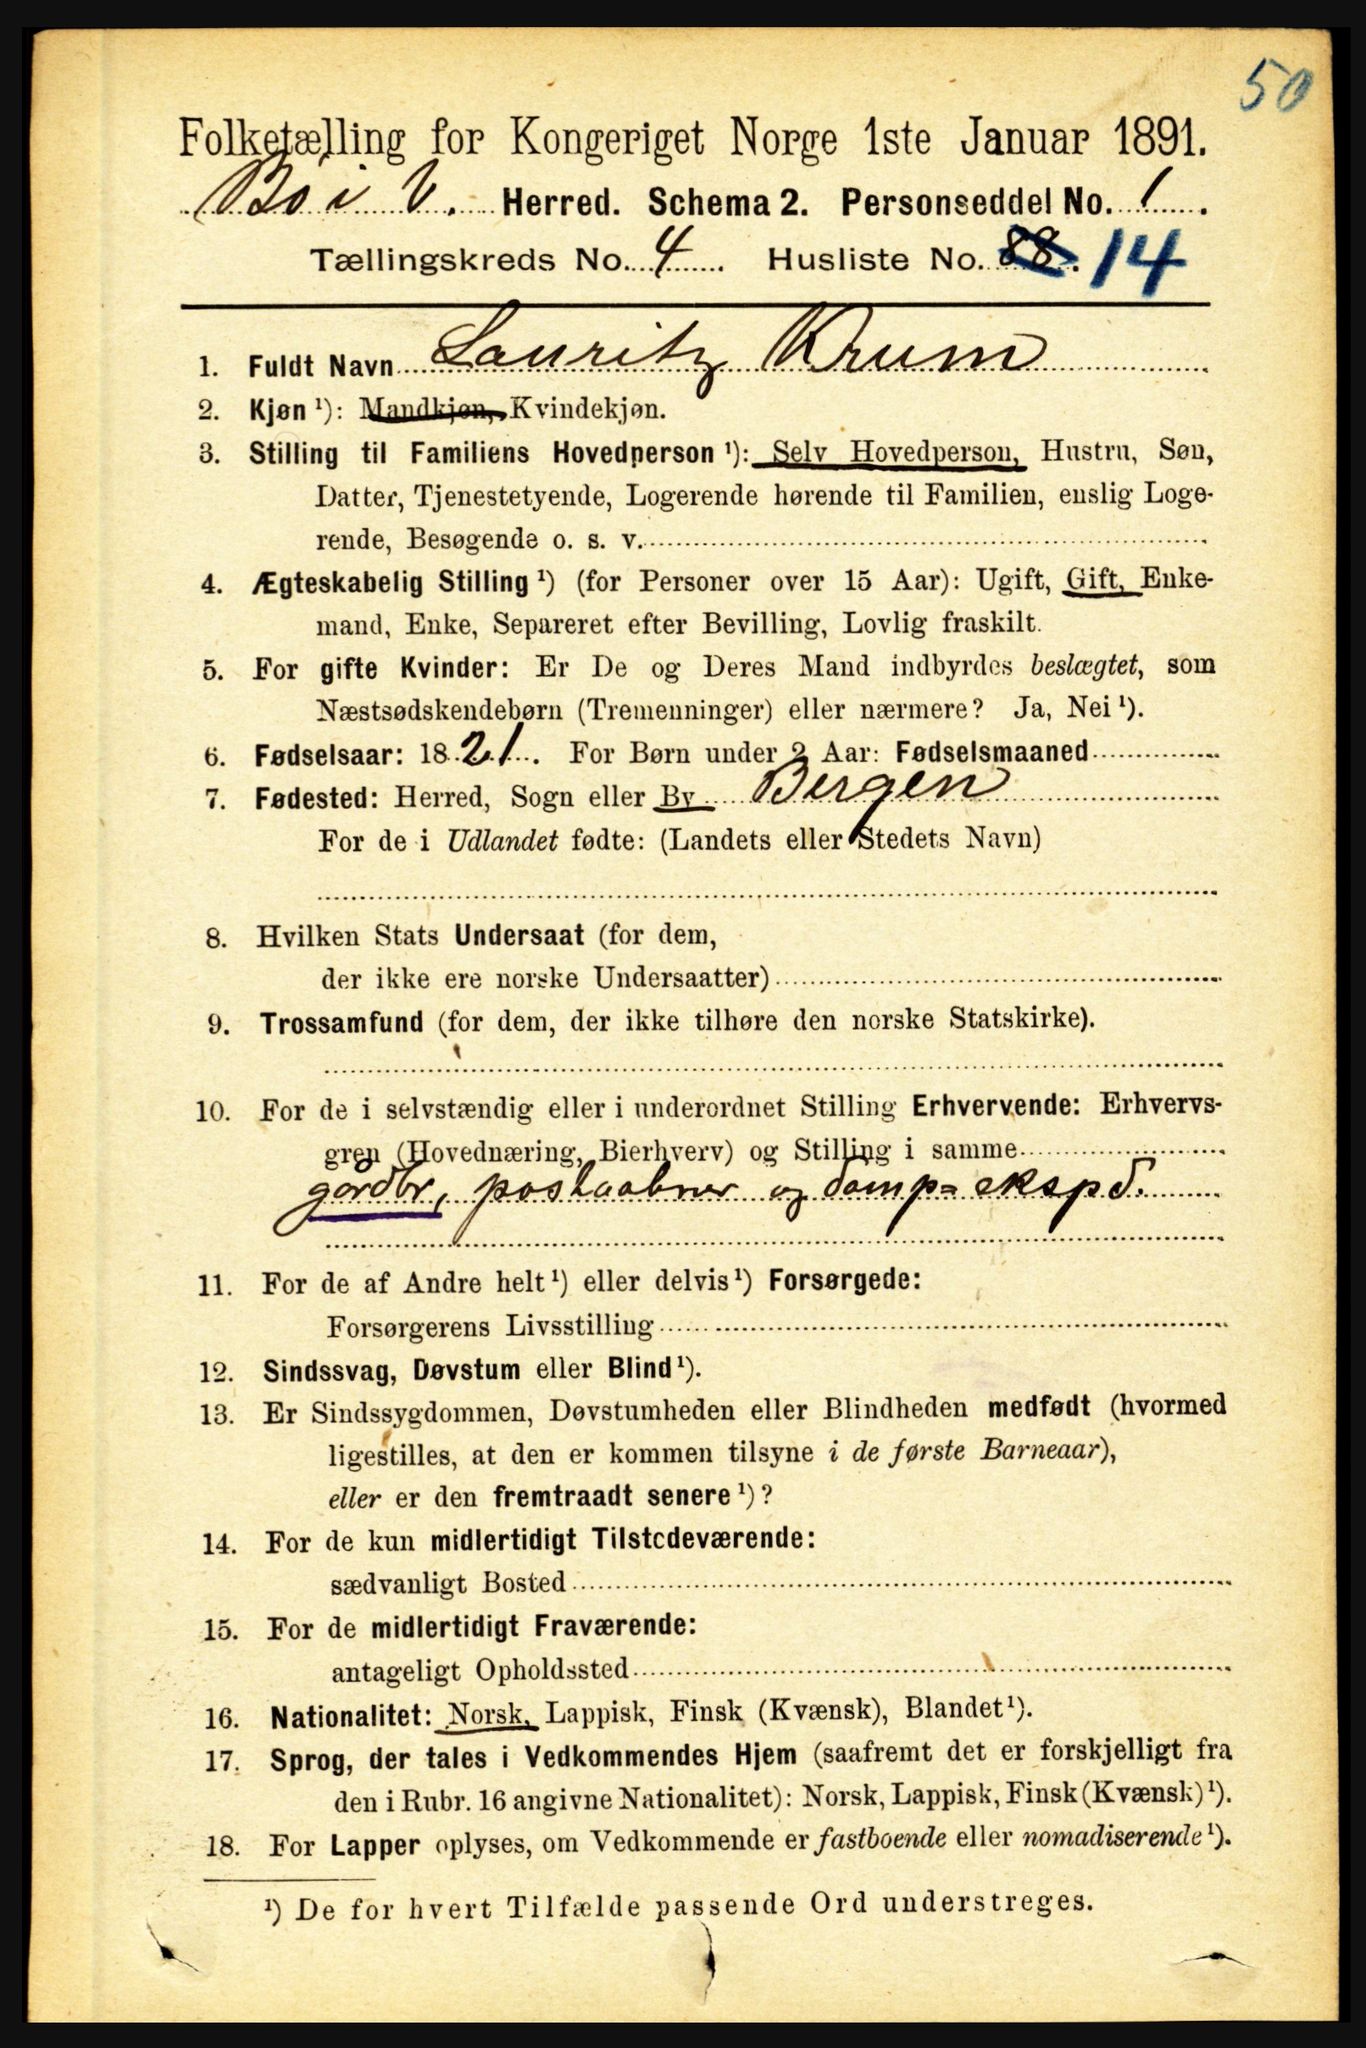 50
Folketælling for Kongeriget Norge 1ste Januar 1891.
Bø i V. Herred. Schema 2. Personseddel No. 1.
Tællingskreds No. 4 Husliste No. 88. 14
1. Fuldt Navn Lauritz Krum
2. Kjøn ¹): Mandkjøn, Kvindekjøn.
3. Stilling til Familiens Hovedperson ¹): Selv Hovedperson, Hustru, Søn,
Datter, Tjenestetyende, Logerende hørende til Familien, enslig Loge-
rende, Besøgende o. s. v.
4. Ægteskabelig Stilling ¹) (for Personer over 15 Aar): Ugift, Gift, Enke-
mand, Enke, Separeret efter Bevilling, Lovlig fraskilt.
5. For gifte Kvinder: Er De og Deres Mand indbyrdes beslægtet, som
Næstsødskendebørn (Tremenninger) eller nærmere? Ja, Nei ¹).
6. Fødselsaar: 1821. For Børn under 2 Aar: Fødselsmaaned
7. Fødested: Herred, Sogn eller By Bergen
For de i Udlandet fødte: (Landets eller Stedets Navn)
8. Hvilken Stats Undersaat (for dem,
der ikke ere norske Undersaatter)
9. Trossamfund (for dem, der ikke tilhøre den norske Statskirke).
10. For de i selvstændig eller i underordnet Stilling Erhvervende: Erhvervs-
gren (Hovednæring, Bierhverv) og Stilling i samme
gårdbr, postaabner og damp=ekspd.
11. For de af Andre helt ¹) eller delvis ¹) Forsørgede:
Forsørgerens Livsstilling
12. Sindssvag, Døvstum eller Blind ¹).
13. Er Sindssygdommen, Døvstumheden eller Blindheden medfødt (hvormed
ligestilles, at den er kommen tilsyne i de første Barneaar),
eller er den fremtraadt senere ¹)?
14. For de kun midlertidigt Tilstedeværende:
sædvanligt Bosted
15. For de midlertidigt Fraværende:
antageligt Opholdssted
16. Nationalitet: Norsk, Lappisk, Finsk (Kvænsk), Blandet ¹).
17. Sprog, der tales i Vedkommendes Hjem (saafremt det er forskjelligt fra
den i Rubr. 16 angivne Nationalitet): Norsk, Lappisk, Finsk (Kvænsk) ¹).
18. For Lapper oplyses, om Vedkommende er fastboende eller nomadiserende ¹).
¹) De for hvert Tilfælde passende Ord understreges.